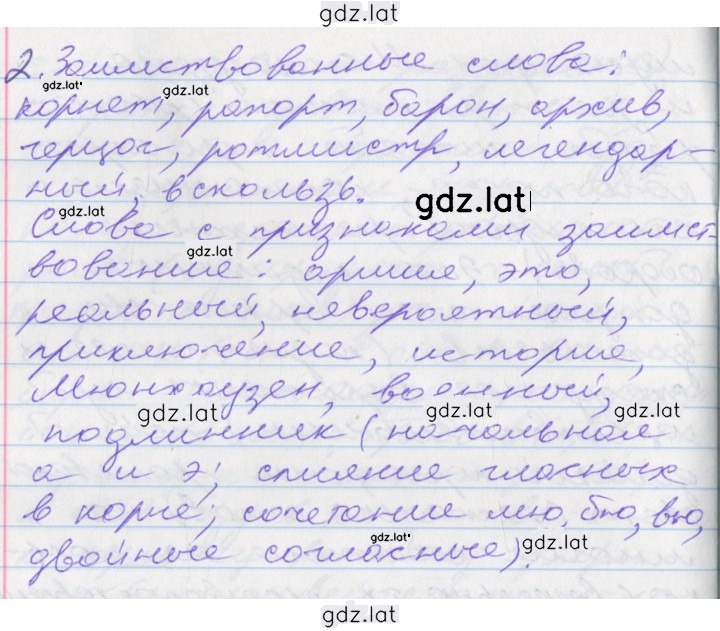 gdz.lat
2. Заимствованные слова:
gdz.lat gdz.lat
корнет, рапорт, барон, архив,
герцог, ротмистр, легендар-
ный, вскользь.
gdz.lat gdz.lat
Слова с признаками заимст-
gdz.lat
вования: армия, это,
реальный, невероятный,
приключение, история,
Мюнхаузен, военный,
gdz.lat gdz.lat gdz.lat
подлинник (начальная
а и э; слияние гласных
в корне; сочетание мю, бю, вю,
gdz.lat gdz.lat
двойные согласные).
gdz.lat